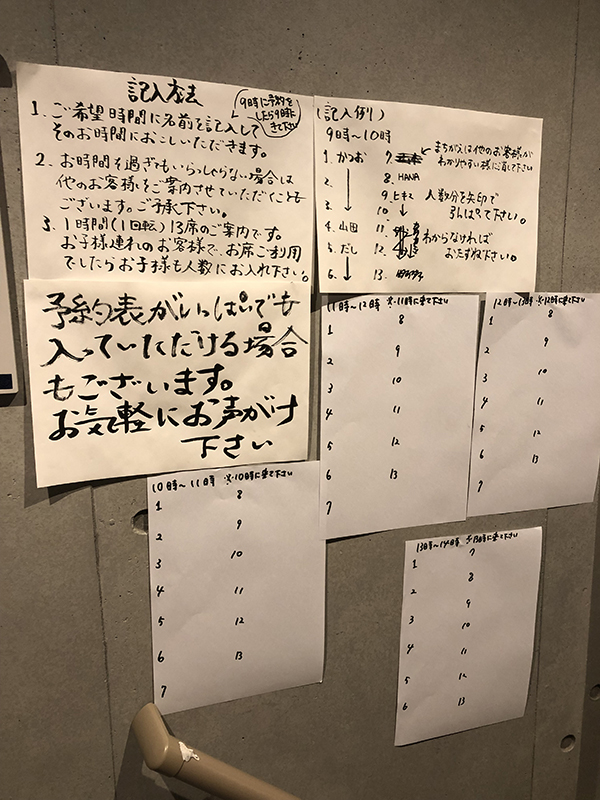 記入方法
9時に予約を
したら9時に
きて下さい
1、ご希望時間に名前を記入して
そのお時間におこしいただきます。
2、お時間を過ぎてもいらっしゃらない場合は
他のお客様をご案内させていただくことも
ございます。ご了承下さい。
3、1時間(1回転)13席のご案内です。
お子様連れのお客様で、お席ご利用
でしたらお子様も人数にお入れ下さい。
(記入例)
9時〜10時
1、かつお
2、
3、
4、山田
5、だし
6、
7
8、HANA
9、ヒキ
10、
11、
12、
13、
まちがえは他のお客様が
わかりやすい様に直して下さい
人数分を矢印で
ひっぱって下さい。
わからなければ
おたずね下さい。
予約表がいっぱいでも
入っていただける場合
もございます。
お気軽にお声がけ
下さい
11時〜12時 ※11時に来て下さい
1
2
3
4
5
6
7
8
9
10
11
12
13
12時〜13時 ※12時に来て下さい
1
2
3
4
5
6
7
8
9
10
11
12
13
10時〜11時 ※10時に来て下さい
1
2
3
4
5
6
7
8
9
10
11
12
13
13時〜14時 ※13時に来て下さい
1
2
3
4
5
6
7
8
9
10
11
12
13